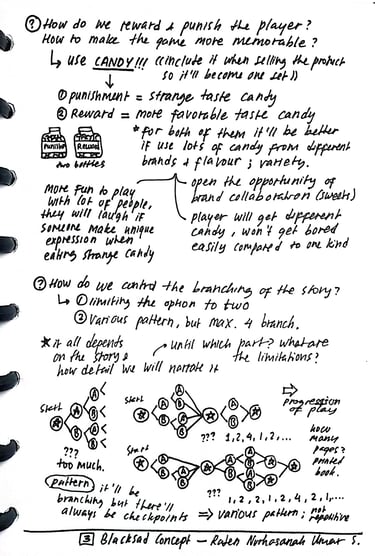 ? How do we reward & punish the player?
How to make the game more memorable?
↳ use CANDY!!! ((include it when selling the product
so it'll become one set))
① punishment = strange taste candy
② Reward = more favorable taste candy
* for both of them it'll be better
if use lots of candy from different
brands & flavour ; variety.
PUNISH
REWARD
two bottles
open the opportunity of
brand collaboration (sweets)
player will get different
candy, won't get bored
easily compared to one kind
more fun to play
with lot of people,
they will laugh if
someone make unique
expression when
eating strange candy
? How do we control the branching of the story?
↳ ① limiting the option to two
② various pattern, but max. 4 branch.
* it all depends
on the story &
how detail we will narrate it
until which part? what are
the limitations?
start
A
B
A
B
A
B
???
too much.
start
A
B
A
B
A
B
A
B
??? 1, 2, 4, 1, 2, ...
⇨
progression
of play
how
many
pages?
printed
book.
start
??? 1, 2, 2, 1, 2, 4, 2, 1, ...
⇒ various pattern ; not
repetitive
pattern it'll be
branching but there'll
always be checkpoints
3 Blacksad Concept — Raden Norhasanah Umar S.